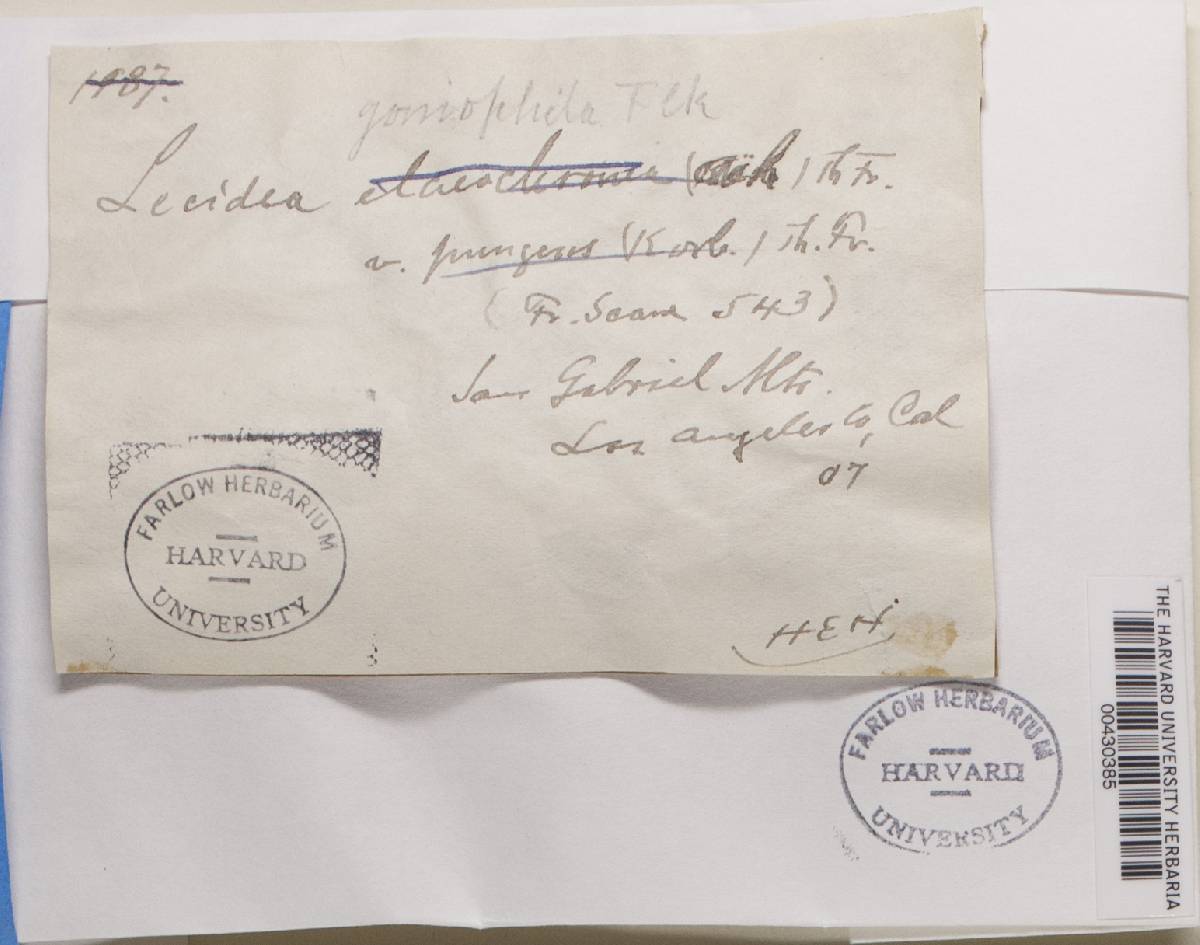 1987.
goniophila Flk
Lecidea elaeochroma (Ach) Th Fr.
v. pungens (Körb.) Th. Fr.
(Fr. Scand 543)
San Gabriel Mts.
Los Angeles Co, Cal
07
HEH.
FARLOW HERBARIUM
HARVARD
UNIVERSITY
FARLOW HERBARIUM
HARVARD
UNIVERSITY
THE HARVARD UNIVERSITY HERBARIA
00430385